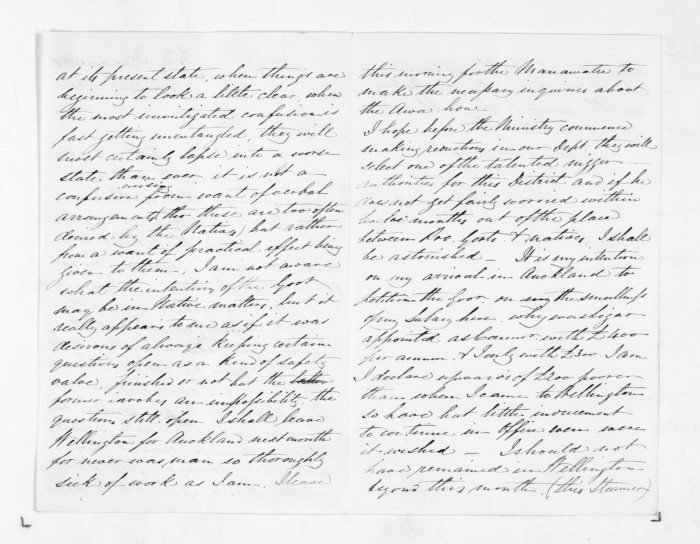 at its present state, when things are
beginning to look a little clear, when
the most unmitigated confusion is
fast getting unentangled, they will
most certainly lapse into a worse
state than ever, it is not a
confusion arising from want of verbal
arrangements (tho these are too often
denied by the Natives) but rather
from a want of practical effect being
given to them. I am not aware
what the intention of the Govt
may be in Native matters, but it
really appears to me as if it was
desirous of always keeping certain
questions open as a kind of safety
valve, finished or not but the latter
former involves an impossibility, the
question still open I shall leave
Wellington for Auckland next month
for never was man so thoroughly
sick of work as I am. I leave
this morning for the Manawatu to
make the necessary inquiries about
the Awa hou.
I hope before the Ministry commence
making reductions in our Dept. they will
select one of the talented nigger
authorities for this District and if he
does not get fairly worried within
two months out of the place
between Govts. & natives, I shall
be astonished — It is my intention
on my arrival in Auckland to
petition the Govr. on the smallness
of my Salary here. why was
appointed as with £400
per annum & I only with £300. I am
I declare upwards of £200 poorer
than when I came to Wellington
so have but little inducement
to continue in Office even were
it wished — I should not
have remained in Wellington
beyond this month (this Steamer)